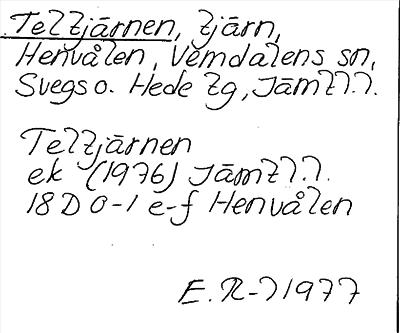 Teltjärnen, tjärn,
Henvålen, Vemdalens sn,
Svegs o. Hede tg, Jämtl.l.
Teltjärnen
ek (1976) Jämtl.l.
18 D 0-1 e-f Henvålen
E.R-l 1977